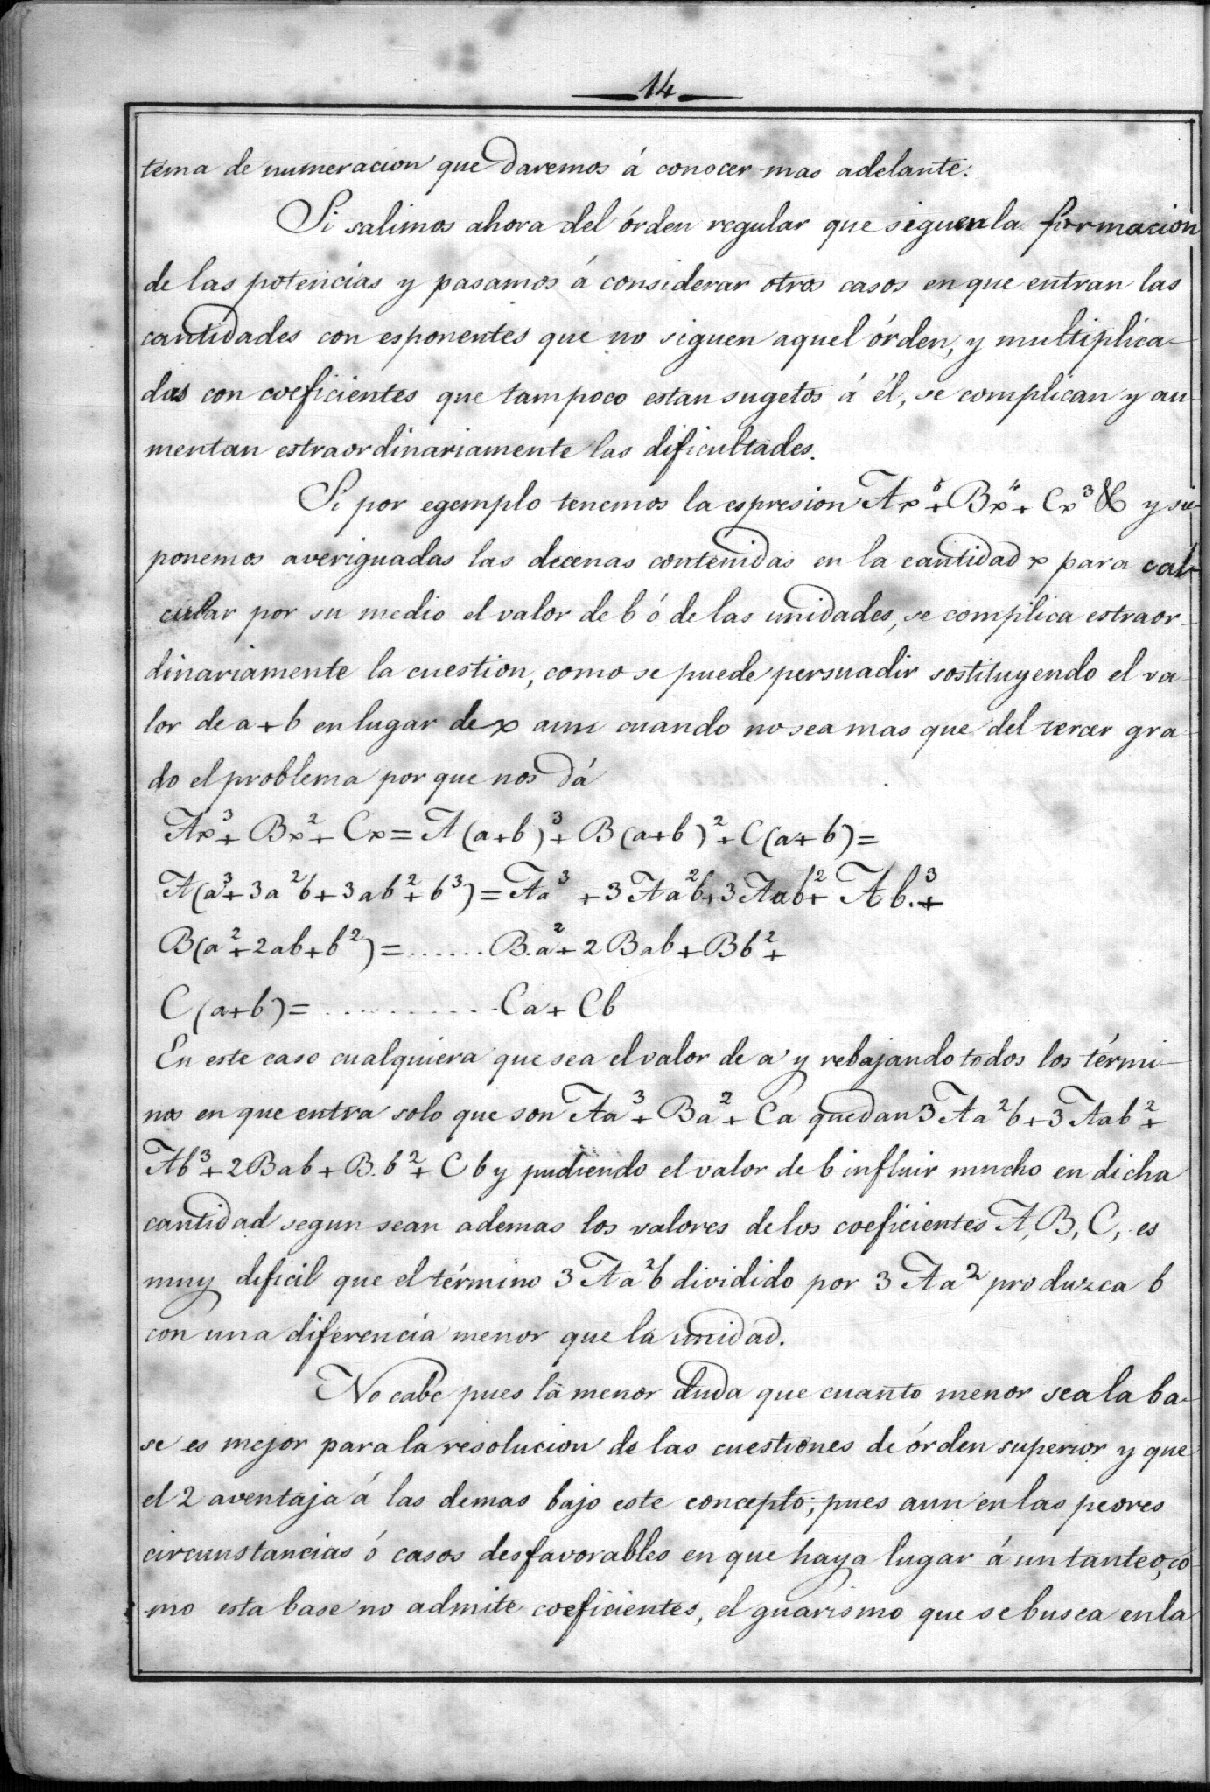 14
tema de numeracion que daremos á conocer mas adelante.
Si salimos ahora del órden regular que siguen la formacion
de las potencias y pasamos á considerar otros casos en que entran las
cantidades con esponentes que no siguen aquel órden, y multiplica-
das con coeficientes que tampoco estan sugetos á él, se complican y au
mentan estraordinariamente las dificultades.
Si por egemplo tenemos la espresion Ax⁵+Bx⁴+Cx³ & y su-
ponemos averiguadas las decenas contenidas en la cantidad x para cal-
cular por su medio el valor de b ó de las unidades, se complica estraor-
dinariamente la cuestion, como se puede persuadir sostituyendo el va-
lor de a+b en lugar de x aun cuando no sea mas que del tercer gra-
do el problema por que nos dá
Ax³+Bx²+Cx=A(a+b)³+B(a+b)²+C(a+b)=
A(a³+3a²b+3ab²+b³)=Aa³+3Aa²b+3Aab²+Ab.³+
B(a²+2ab+b²)=......B.a²+2Bab+Bb²+
C(a+b)=..........Ca+Cb
En este caso cualquiera que sea el valor de a y rebajando todos los térmi-
nos en que entra solo que son Aa³+Ba²+Ca quedan 3Aa²b+3Aab²+
Ab³+2Bab+B.b²+Cb y pudiendo el valor de b influir mucho en dicha
cantidad segun sean ademas los valores de los coeficientes A, B, C, es
muy dificil que el término 3Aa²b dividido por 3Aa² produzca b
con una diferencia menor que la unidad.
No cabe pues la menor duda que cuanto menor sea la ba-
se es mejor para la resolucion de las cuestiones de órden superior y que
el 2 aventaja á las demas bajo este concepto; pues aun en las peores
circunstancias ó casos desfavorables en que haya lugar á un tanteo, co-
mo esta base no admite coeficientes, el guarismo que se busca en la